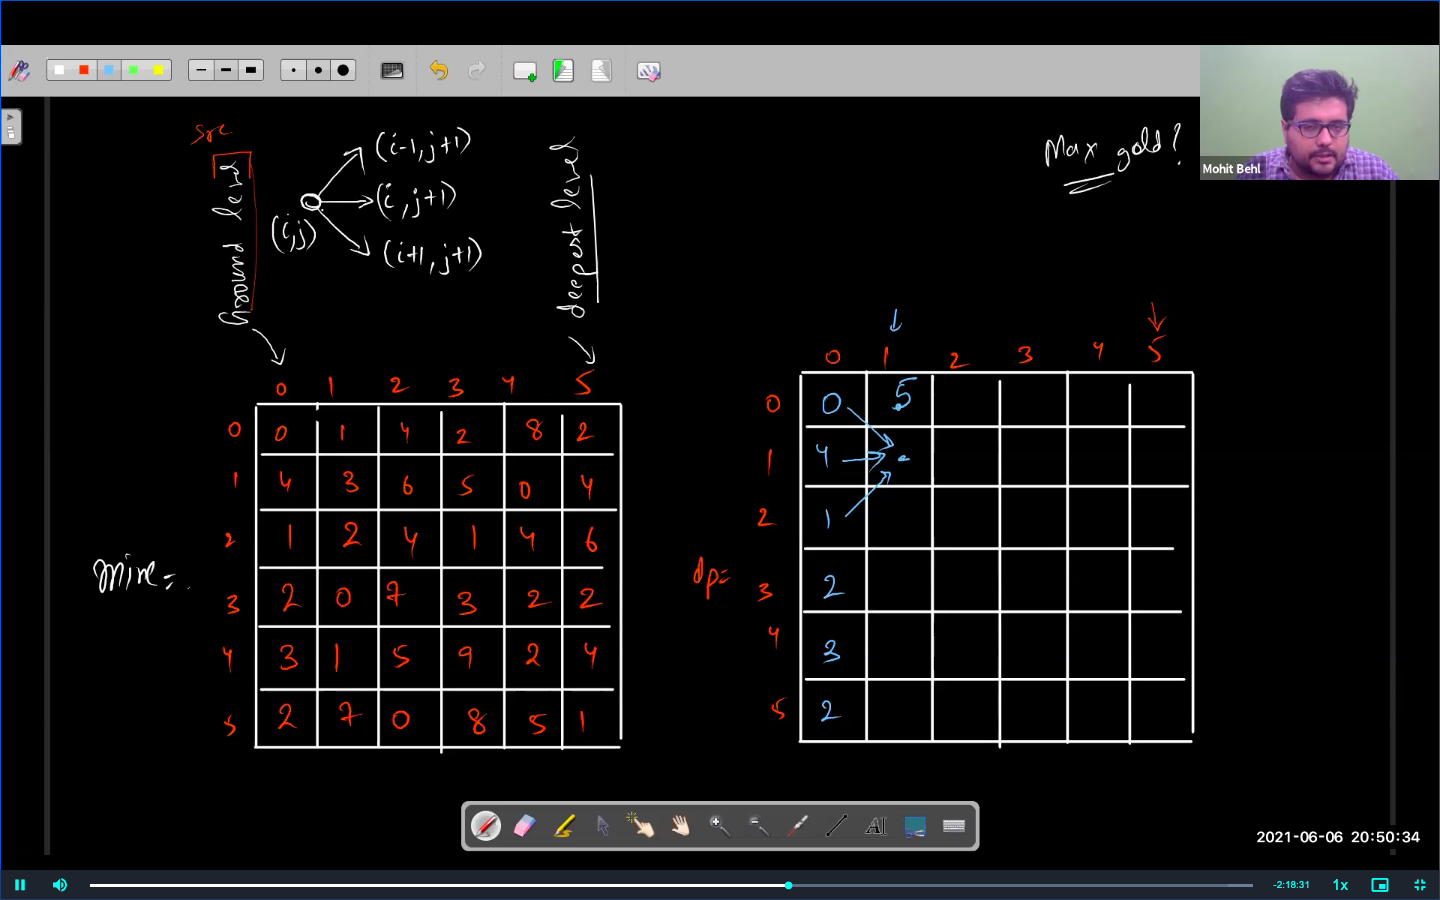 src
Ground level
(i,j)
(i-1, j+1)
(i, j+1)
(i+1, j+1)
deepest level
Max gold?
Mohit Behl
0 1 2 3 4 5
0 0 1 4 2 8 2
1 4 3 6 5 0 4
2 1 2 4 1 4 6
mine=
3 2 0 7 3 2 2
4 3 1 5 9 2 4
5 2 7 0 8 5 1
0 1 2 3 4 5
0 0 5
1 4
2 1
dp=
3 2
4 3
5 2
AI
2021-06-06 20:50:34
-2:18:31
1x